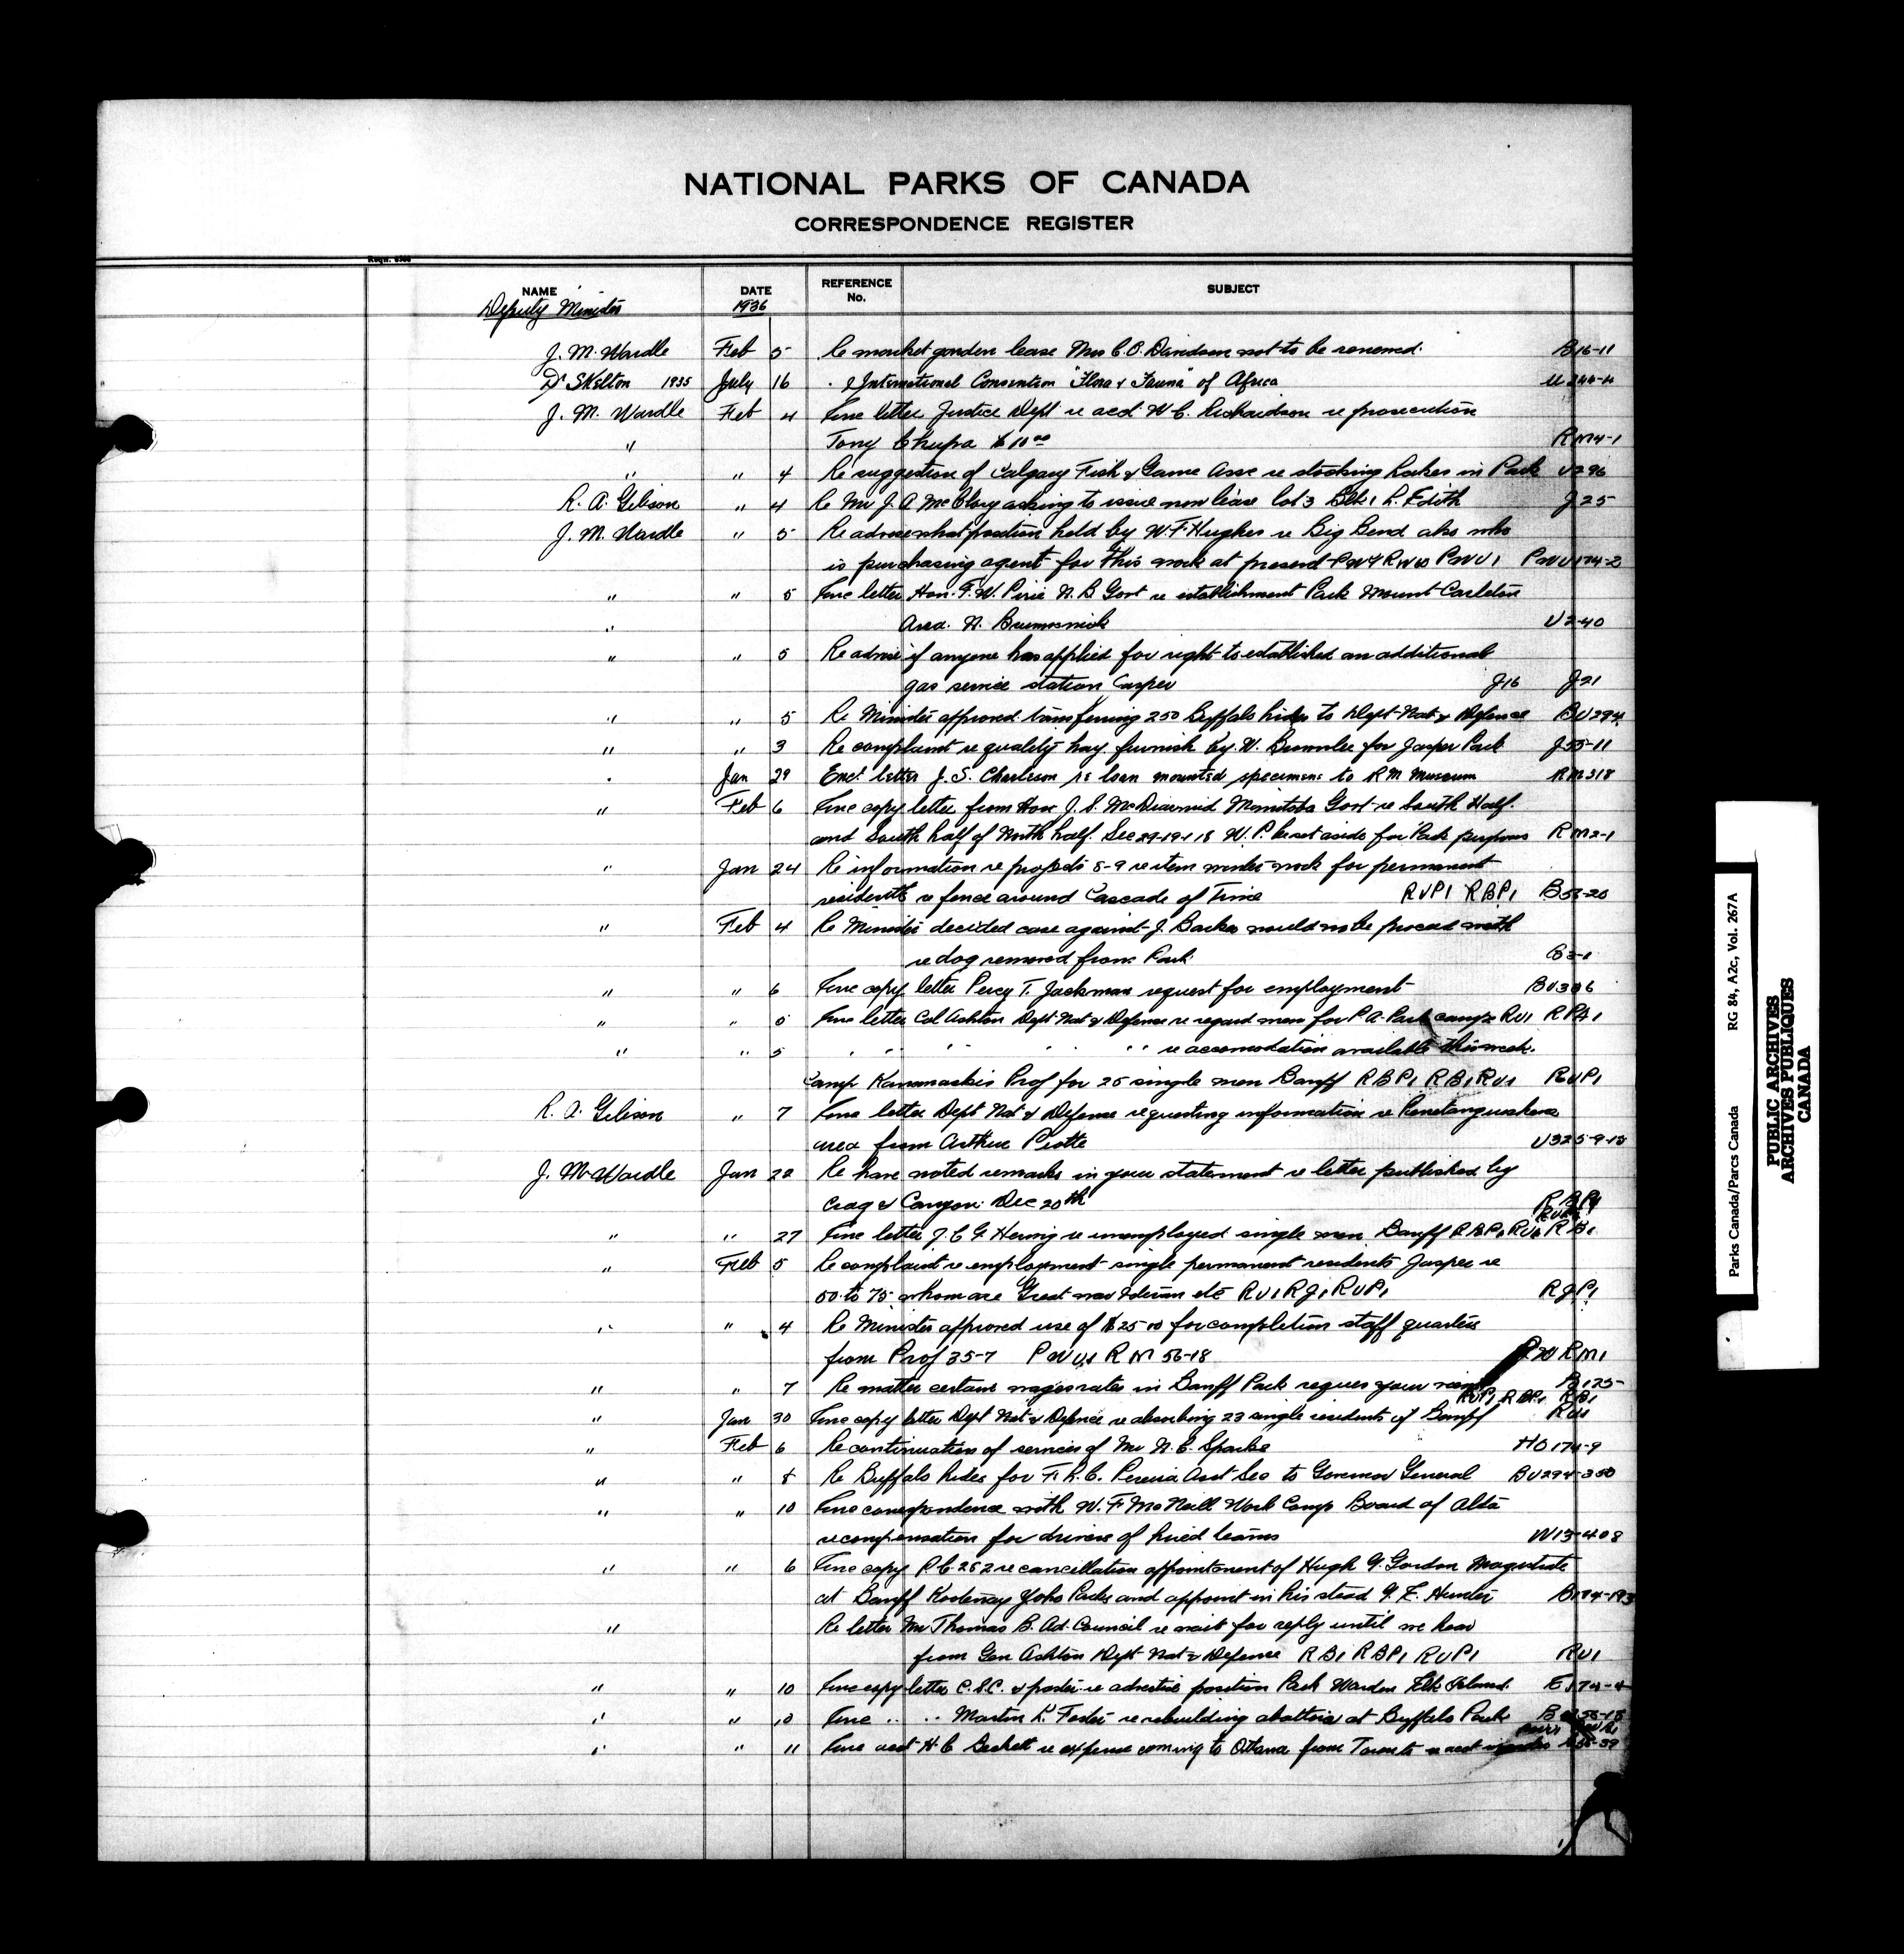 NATIONAL PARKS OF CANADA
CORRESPONDENCE REGISTER
NAME DATE REFERENCE No. SUBJECT
Deputy Minister 1936
J. M. Wardle Feb 5 Re market garden lease Mrs C. O. Davidson not to be renewed. B16-11
Dr Skelton 1935 July 16 International Convention "Flora & Fauna" of Africa
J. M. Wardle Feb 4 Enc letter Justice Dept re acct W. C. Richardson re prosecution
" Tony Chupa $10.00 RM4-1
" " 4 Re suggestion of Calgary Fish & Game Assc re stocking Lakes in Park U296
R. A. Gibson " 4 Re Mr J. A McClory asking to issue new lease lot 3 Blk 1 L. Edith J25
J. M. Wardle " 5 Re advise what position held by W. F. Hughes re Big Bend also who
is purchasing agent for this work at present PWU1 PWU174-2
" " 5 Enc letter Hon. F. W. Pirie N. B Govt re establishment Park Mount Carleton
" Area. N. Brunswick U2-40
" " 5 Re advise if anyone has applied for right to established an additional
gas service station Jasper J16 J21
" " 5 Re Minister approved transferring 250 Buffalo hides to Dept Nat'l Defense BU294
" " 3 Re complaint re quality hay furnish by W. Brownlee for Jasper Park J55-11
" Jan 29 Encl letter J. S. Charleson re loan mounted specimens to RM Museum RM318
" Feb 6 Enc copy letter from Hon J. S. McDiarmid Manitoba Govt re South Half
and South half of North half Sec 29-19-18 W. P. be set aside for Park purposes RM2-1
" Jan 24 Re information re projects 8-9 re item winter work for permanent
residents re fence around Cascade of Time RUP1 RBP1 B56-20
" Feb 4 Re Minister decided case against J. Barker would not be proceed with
re dog removed from Park B3-1
" " 6 Enc copy letter Percy T. Jackman request for employment BU306
" " 5 Enc letter Col Ashton Dept Nat'l Defense re regard men for P. A. Park camps RU1 RPA1
" " 5 " " " " " re accomodation available this week.
Camp Kananaskis Proj for 25 single men Banff RBP1 RB1 RU1 RUP1
R. A. Gibson " 7 Enc letter Dept Nat'l Defense requesting information re Penetanguishene
area from Arthur Piotte U325-9-18
J. M. Wardle Jan 22 Re have noted remarks in your statement re letter published by
Crag & Canyon Dec 20th RBP1
" " 27 Enc letter J. C. G. Herwig re unemployed single men Banff RBP1 RU1 RB1
" Feb 5 Re complaint re employment single permanent residents Jasper re
50 to 75 whom are Great war Veteran etc RU1 RJ1 RUP1 RJP1
" " 4 Re Minister approved use of $25.00 for completion staff quarters
from Proj 35-7 PWU1 RM 56-18 PW RM1
" " 7 Re matter certain magistrates in Banff Park reques your views B125-
RUP1 RBP1 RB1
" Jan 30 Enc copy letter Dept Nat'l Defence re absorbing 23 single residents of Banff RU1
" Feb 6 Re continuation of services of Mr N. C. Sparks HO174-9
" " 8 Re Buffalo hides for F. L. C. Pereira Asst Sec to Governor General BU294-350
" " 10 Enc correspondence with W. F. McNeill Work Comp Board of Alta
re compensation for drivers of hired teams W13-408
" " 6 Enc copy P. C. 252 re cancellation appointment of Hugh G. Gordon Magistrate
at Banff Kootenay Yoho Parks and appoint in his stead G. E. Hunter B174-193
" Re letter Mr Thomas B. Ad. Council re wait for reply until we hear
from Gen Ashton Dept Nat'l Defense RB1 RBP1 RUP1 RU1
" " 10 Enc copy letter C.S.C. & poster re advertise position Park Warden Elk Island E174-4
" " 10 Enc " " Martin L. Foster re rebuilding abattoir at Buffalo Park
" " 11 Enc acct H. C. Beckett re expense coming to Ottawa from Toronto re acct
PUBLIC ARCHIVES
ARCHIVES PUBLIQUES
CANADA
Parks Canada/Parcs Canada RG 84, A2c, Vol. 267A